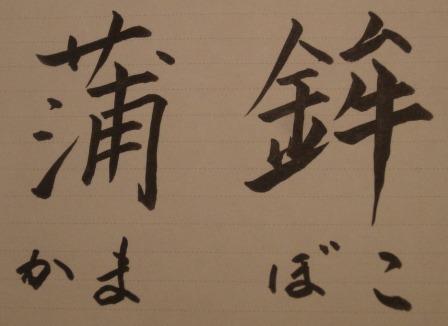 蒲鉾
かまぼこ